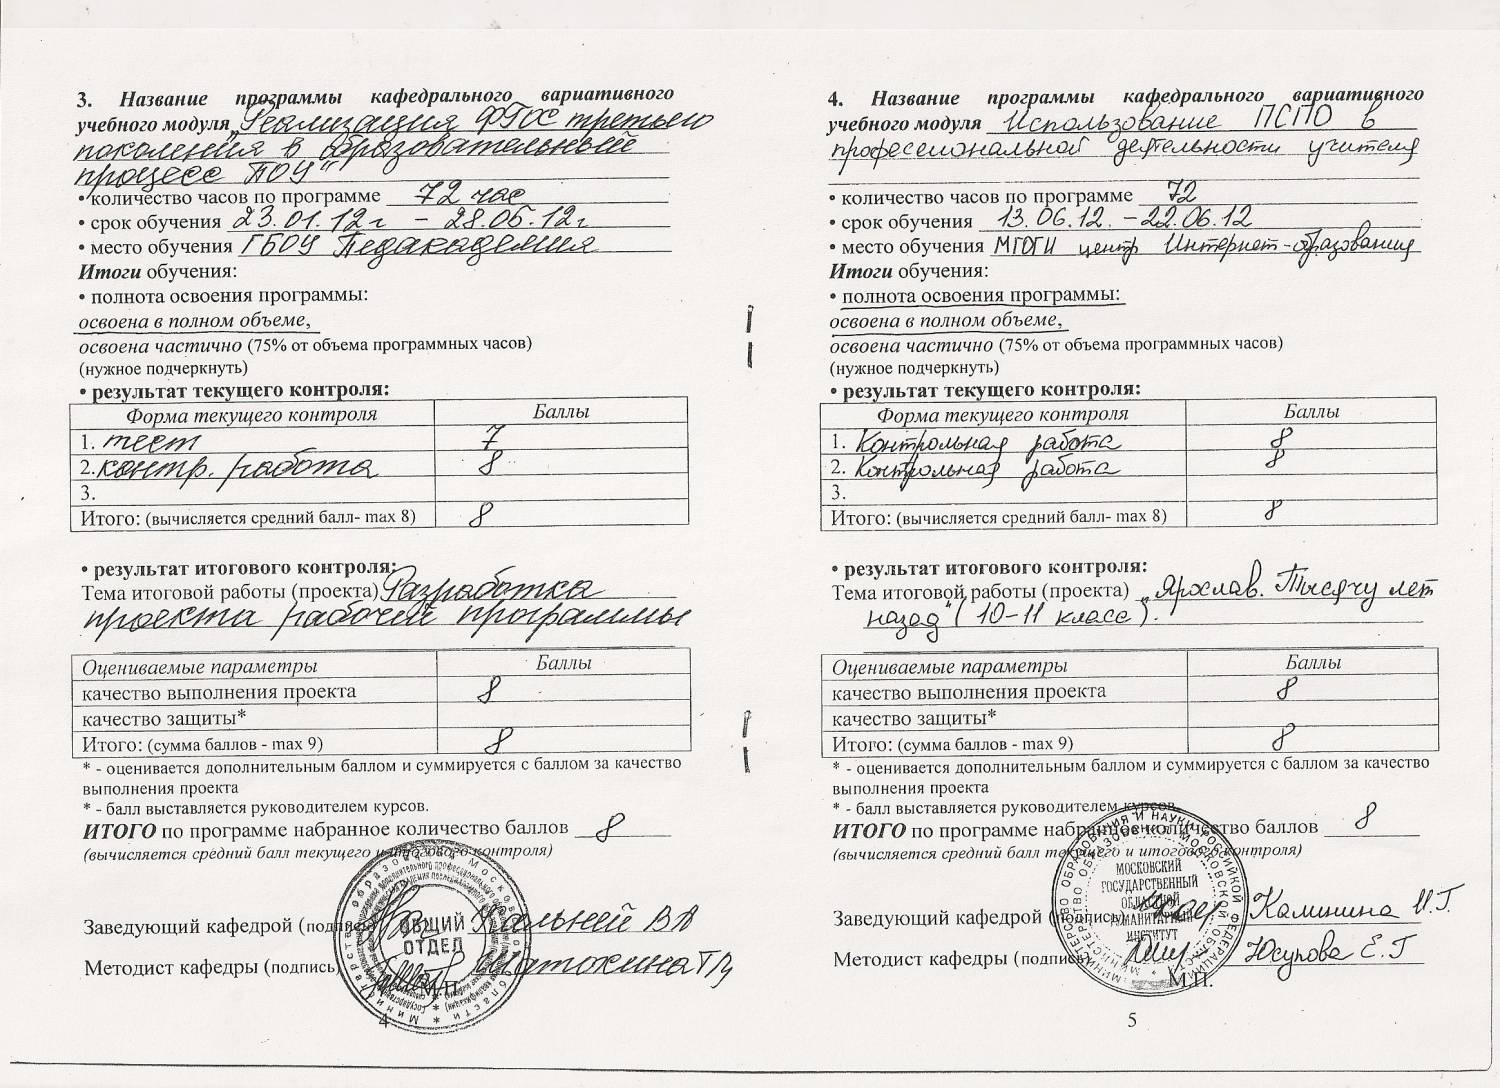 3. Название программы кафедрального вариативного
учебного модуля „Реализация ФГОС третьего
поколения в образовательный
процесс ПОУ“
• количество часов по программе 72 час
• срок обучения 23.01.12г – 28.05.12г
• место обучения ГБОУ Педакадемия
Итоги обучения:
• полнота освоения программы:
освоена в полном объеме,
освоена частично (75% от объема программных часов)
(нужное подчеркнуть)
• результат текущего контроля:
Форма текущего контроля Баллы
1. тест 7
2. контр. работа 8
3.
Итого: (вычисляется средний балл- max 8) 8
• результат итогового контроля:
Тема итоговой работы (проекта) Разработка
проекта рабочей программы
Оцениваемые параметры Баллы
качество выполнения проекта 8
качество защиты*
Итого: (сумма баллов - max 9) 8
* - оценивается дополнительным баллом и суммируется с баллом за качество
выполнения проекта
* - балл выставляется руководителем курсов.
ИТОГО по программе набранное количество баллов 8
(вычисляется средний балл текущего и итогового контроля)
Заведующий кафедрой (подпись)
Методист кафедры (подпись)
ОБЩИЙ
ОТДЕЛ
М.П.
4
4. Название программы кафедрального вариативного
учебного модуля Использование ПСПО в
профессиональной деятельности учителя
• количество часов по программе 72
• срок обучения 13.06.12. – 22.06.12
• место обучения МГОГИ центр Интернет-образования
Итоги обучения:
• полнота освоения программы:
освоена в полном объеме,
освоена частично (75% от объема программных часов)
(нужное подчеркнуть)
• результат текущего контроля:
Форма текущего контроля Баллы
1. Контрольная работа 8
2. Контрольная работа 8
3.
Итого: (вычисляется средний балл- max 8) 8
• результат итогового контроля:
Тема итоговой работы (проекта) „Ярослав. Тысячу лет
назад“ (10-11 класс).
Оцениваемые параметры Баллы
качество выполнения проекта 8
качество защиты*
Итого: (сумма баллов - max 9) 8
* - оценивается дополнительным баллом и суммируется с баллом за качество
выполнения проекта
* - балл выставляется руководителем курсов.
ИТОГО по программе набранное количество баллов 8
(вычисляется средний балл текущего и итогового контроля)
Заведующий кафедрой (подпись) Калинина И.Г.
Методист кафедры (подпись) Юсупова Е.Г
МОСКОВСКИЙ
ГОСУДАРСТВЕННЫЙ
ОБЛАСТНОЙ
ГУМАНИТАРНЫЙ
ИНСТИТУТ
М.П.
5